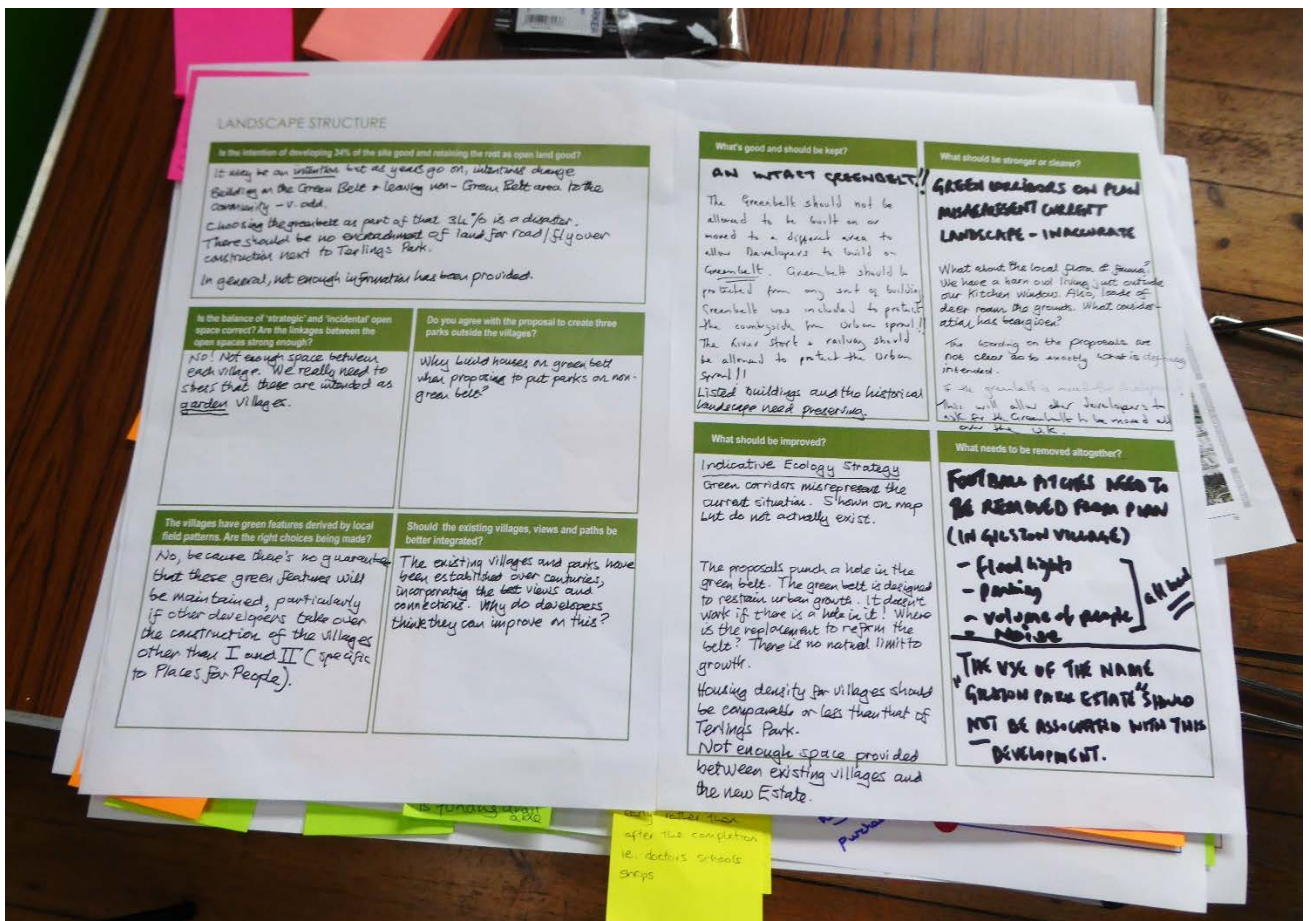 MARKER
LANDSCAPE STRUCTURE
Is the intention of developing 34% of the site good and retaining the rest as open land good?
It may be an intention but as years go on, intentions change
Building on the Green Belt & leaving non-Green Belt area to the
community - v. odd.
Choosing the greenbelt as part of that 34% is a disaster.
There should be no encroachment of land for road/flyover
construction next to Terlings Park.
In general, not enough information has been provided.
Is the balance of 'strategic' and 'incidental' open
space correct? Are the linkages between the
open spaces strong enough?
No! Not enough space between
each village. We really need to
stress that these are intended as
garden villages.
Do you agree with the proposal to create three
parks outside the villages?
Why build houses on greenbelt
when proposing to put parks on non-
green belt?
The villages have green features derived by local
field patterns. Are the right choices being made?
No, because there's no guarantee
that these green features will
be maintained, particularly
if other developers take over
the construction of the villages
other than I and II (specific
to Places for People).
Should the existing villages, views and paths be
better integrated?
The existing villages and parks have
been established over centuries,
incorporating the best views and
connections. Why do developers
think they can improve on this?
What's good and should be kept?
AN INTACT GREENBELT!!
The Greenbelt should not be
allowed to be built on or
moved to a different area to
allow Developers to build on
Greenbelt. Greenbelt should be
protected from any sort of building
Greenbelt was included to protect
the countryside from Urban sprawl!!
The River Stort & railway should
be allowed to protect the Urban
Sprawl!!
Listed buildings and the historical
landscape need preserving.
What should be stronger or clearer?
GREEN CORRIDORS ON PLAN
MISREPRESENT CURRENT
LANDSCAPE - INACCURATE
What about the local flora & fauna?
We have a barn owl living just outside
our kitchen window. Also, loads of
deer roam the grounds. What consider-
ation has been given?
The wording on the proposals are
not clear as to exactly what is
intended.
If the greenbelt is moved for
This will allow other developers to
ask for the Greenbelt to be moved all
over the U.K.
What should be improved?
Indicative Ecology Strategy
Green corridors misrepresent the
current situation. Shown on map
but do not actually exist.
The proposals punch a hole in the
green belt. The green belt is designed
to restrain urban growth. It doesn't
work if there is a hole in it! Where
is the replacement to reform the
belt? There is no natural limit to
growth.
Housing density for villages should
be comparable or less than that of
Terlings Park.
Not enough space provided
between existing villages and
the new Estate.
What needs to be removed altogether?
FOOTBALL PITCHES NEED TO
BE REMOVED FROM PLAN
(IN GILSTON VILLAGE)
- floodlights
- parking
- volume of people
- NOISE
all bad
THE USE OF THE NAME
"GILSTON PARK ESTATE" SHOULD
NOT BE ASSOCIATED WITH THIS
DEVELOPMENT.
is funding
able
early rather than
after the completion
ie. doctors schools
shops